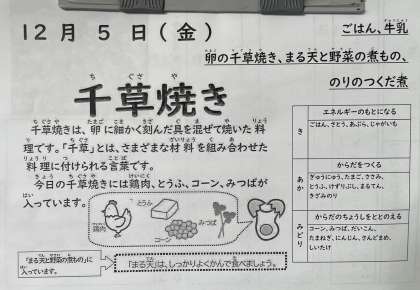 12月 5日(金)
ごはん、牛乳
卵の千草焼き、まる天と野菜の煮もの、
のりのつくだ煮
千草焼き
千草焼きは、卵に細かく刻んだ具を混ぜて焼いた料
理です。「千草」とは、さまざまな材料を組み合わせた
料理に付けられる言葉です。
今日の千草焼きには鶏肉、とうふ、コーン、みつばが
入っています。
鶏肉
とうふ
コーン
みつば
「まる天と野菜の煮もの」に
入っています。
「まる天」は、しっかりよくかんで食べましょう。
き
エネルギーのもとになる
ごはん、さとう、あぶら、じゃがいも
あか
からだをつくる
ぎゅうにゅう、たまご、ささみ、
とうふ、けずりぶし、まるてん、
きざみのり
みどり
からだのちょうしをととのえる
コーン、みつば、だいこん、
たまねぎ、にんじん、さんどまめ、
しいたけ